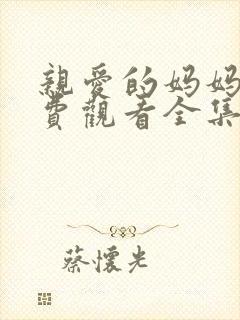 親愛的妈妈
費觀看全集
蔡懷光